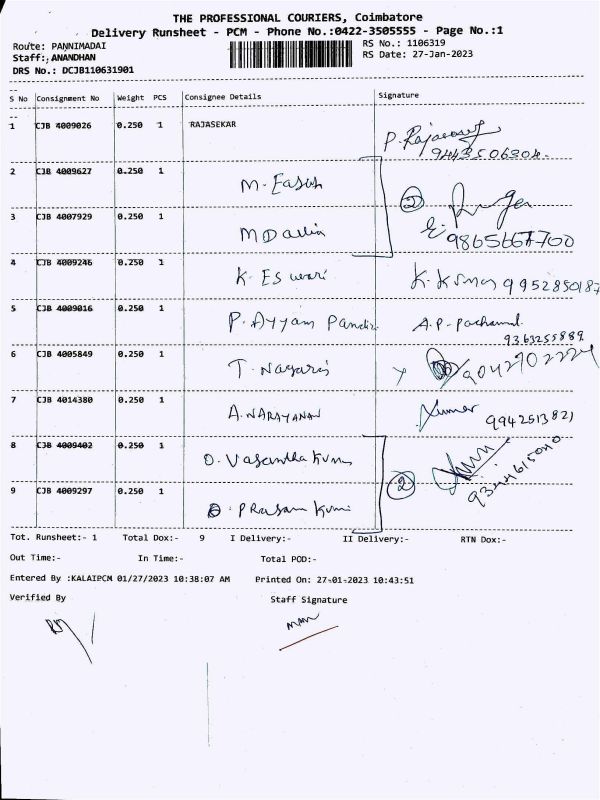 THE PROFESSIONAL COURIERS, Coimbatore
Delivery Runsheet - PCM - Phone No.:0422-3505555 - Page No.:1
Route: PANNIMADAI
RS No.: 1106319
Staff: ANANDHAN
RS Date: 27-Jan-2023
DRS No.: DCJB110631901
S No Consignment No Weight PCS Consignee Details Signature
1 CJB 4009026 0.250 1 RAJASEKAR P. Rajasekar
9443506304
2 CJB 4009627 0.250 1 M.
3 CJB 4007929 0.250 1 M 2 E.
4 CJB 4009246 0.250 1 K. Eswari K. 9952850187
5 CJB 4009016 0.250 1 P. Ayyam A.P.
9363255889
6 CJB 4005849 0.250 1 T. 9042902224
7 CJB 4014380 0.250 1 A. NARAYANAN Kumar 9942513821
8 CJB 4009402 0.250 1 D. Vasantha Kumar
2
9 CJB 4009297 0.250 1 Kumar
Tot. Runsheet:- 1 Total Dox:- 9 I Delivery:- II Delivery:- RTN Dox:-
Out Time:- In Time:- Total POD:-
Entered By :KALAIPCM 01/27/2023 10:38:07 AM Printed On: 27-01-2023 10:43:51
Verified By Staff Signature